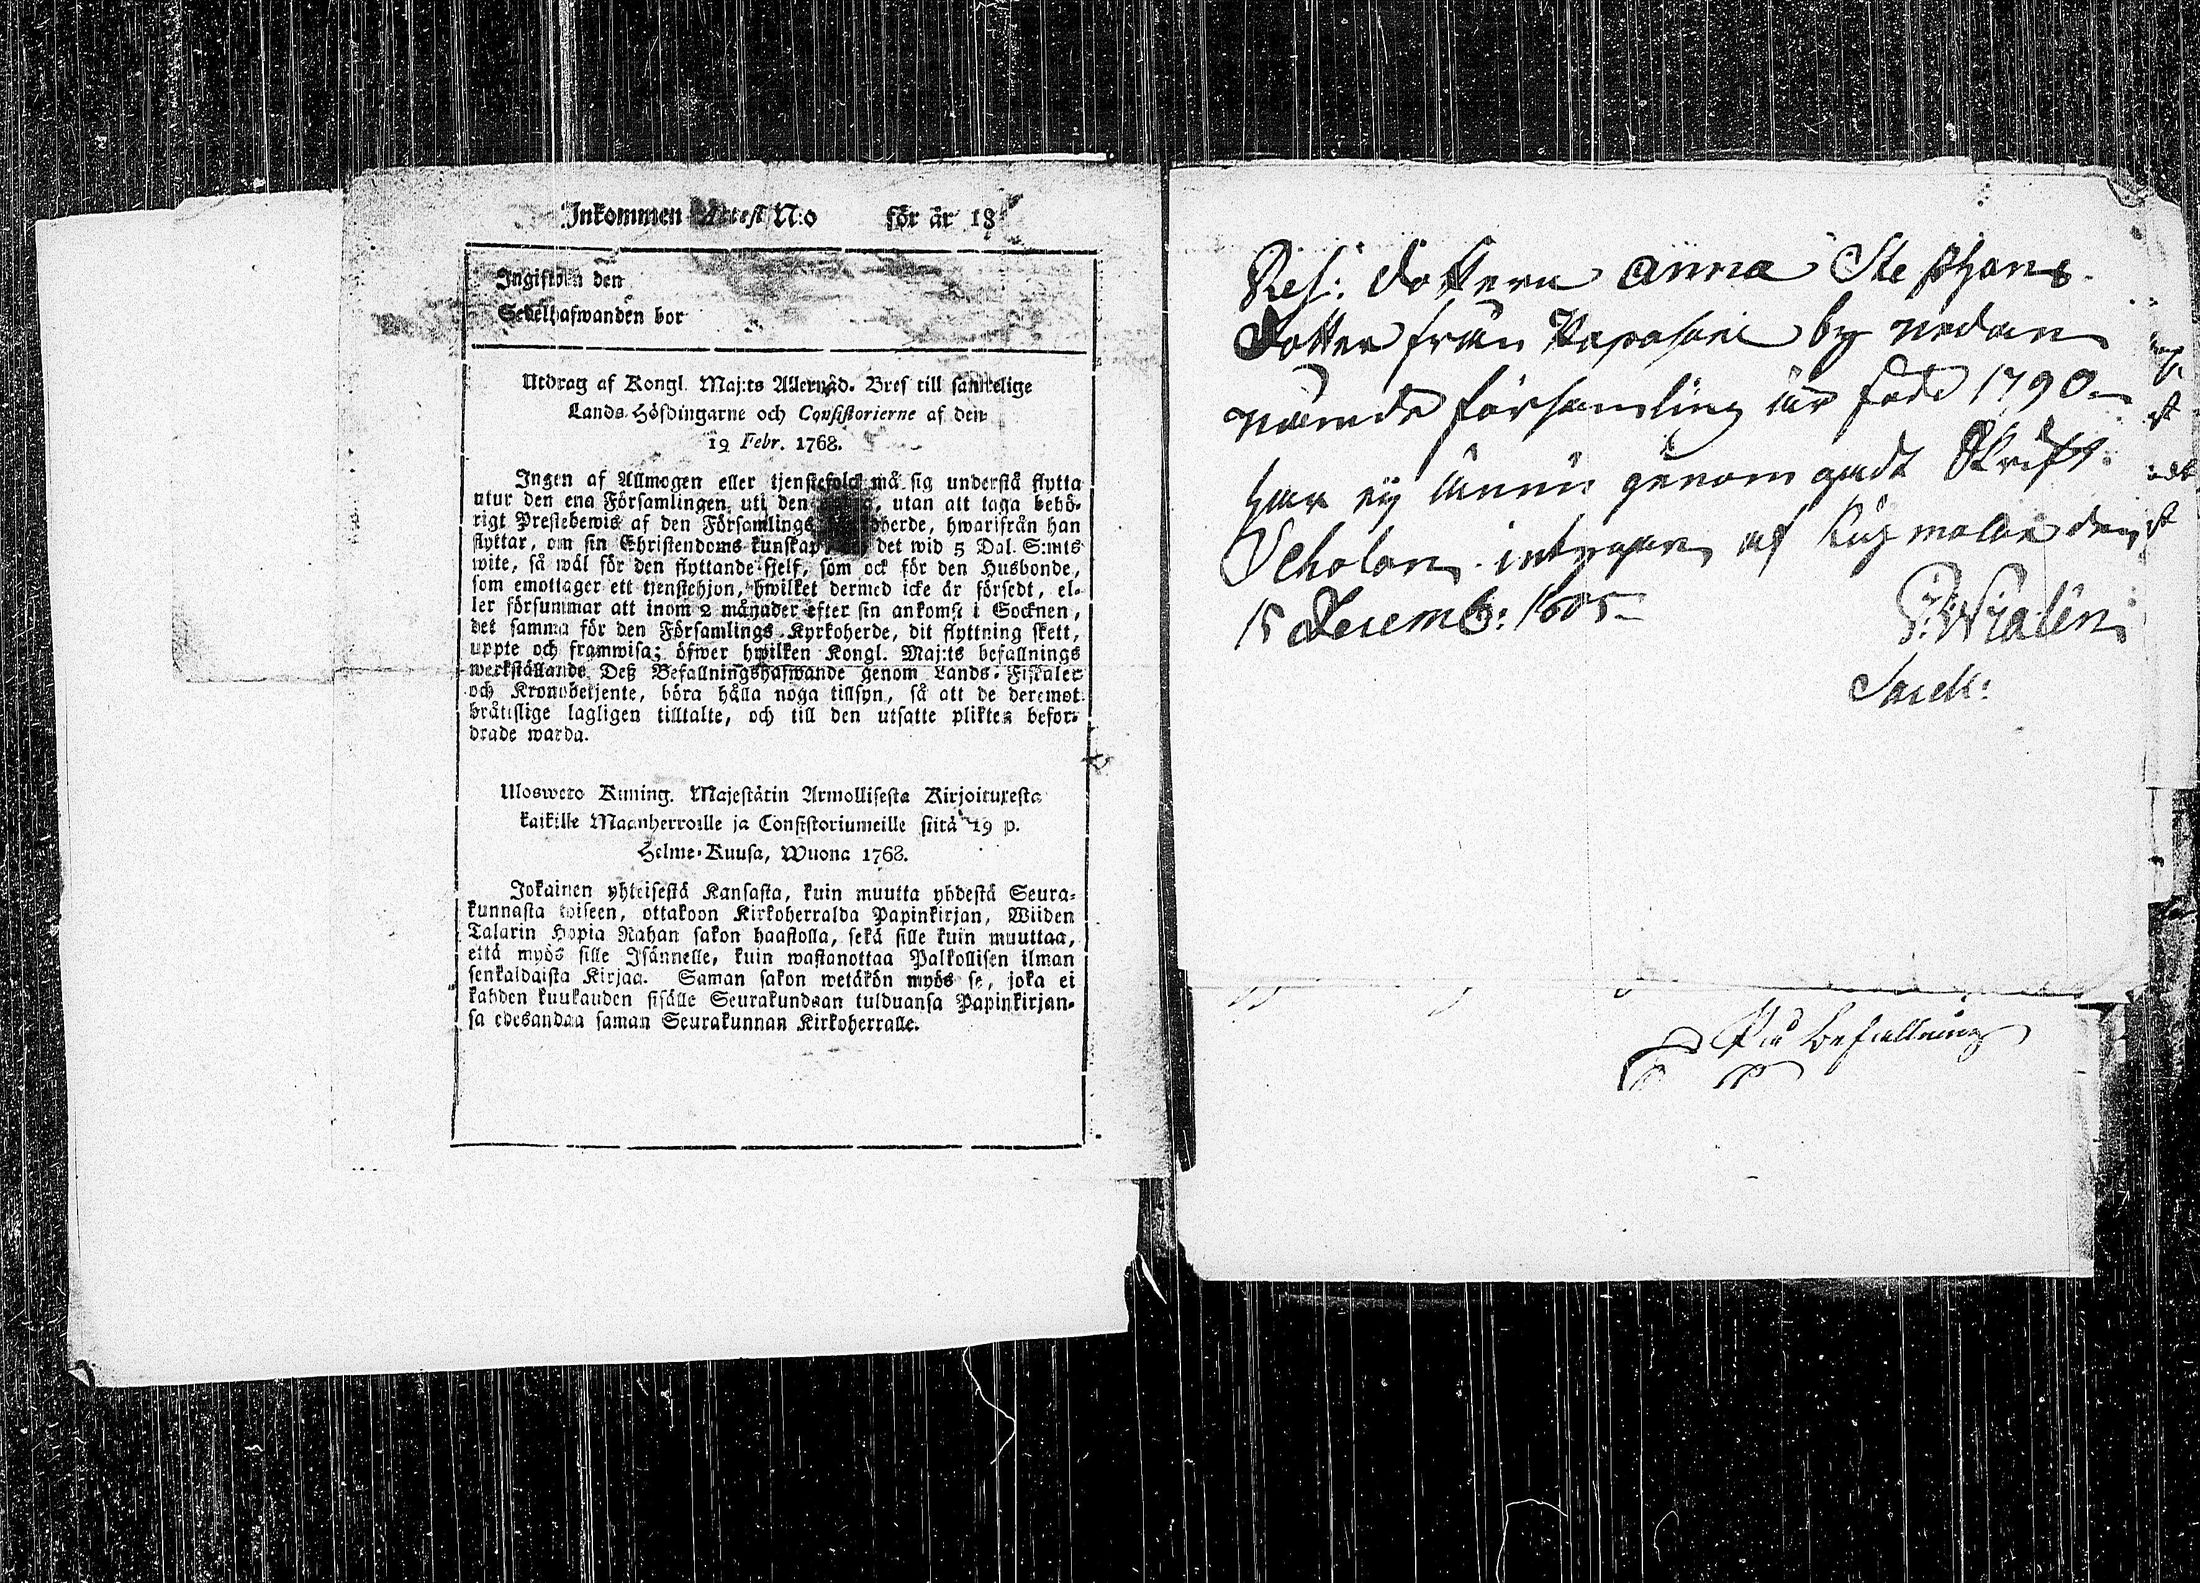 Inkommen Attest N:o för år 18
Ingifwen den
Sedelhafwanden bor
Utdrag af Kongl. Maj:ts Allernåd. Bref till samtelige
Lands-Höfdingarne och Consistorierne af den
19 Febr. 1768.
Ingen af Allmogen eller tjenstefolck må sig understå flytta
utur den ena Församlingen uti den , utan att taga behö-
rigt Prestebewis af den Församlings herde, hwarifrån han
flyttar, om sin Christendoms kunskap, det wid 5 Dal. S:mts
wite, så wäl för den flyttande sjelf, som ock för den Husbonde,
som emottager ett tjenstehjon, hwilket dermed icke är försedt, el-
ler försummar att inom 2 månader efter sin ankomst i Socknen,
det samma för den Församlings Kyrkoherde, dit flyttning skett,
uppte och framwisa; öfwer hwilken Kongl. Maj:ts befallnings
werkställande Deß Befallningshafwande genom Lands-Fiskaler
och Kronobetjente, böra hålla noga tillsyn, så att de deremot
bråttslige lagligen tilltalte, och till den utsatte plikten befor-
drade warda.
Ulosweto Kuning. Majestätin Armollisesta Kirjoituxesta
kaikille Maanherroille ja Consistoriumeille siitä 19 p.
Helme-Kuusa, Wuona 1768.
Jokainen yhteisestä Kansasta, kuin muutta yhdestä Seura-
kunnasta toiseen, ottakoon Kirkoherralda Papinkirjan, Wiiden
Talarin Hopia Rahan sakon haastolla, sekä sille kuin muuttaa,
että myös sille Isännelle, kuin wastanottaa Palkollisen ilman
senkaldaista Kirjaa. Saman sakon wetäkön myös se, joka ei
kahden kuukauden sisälle Seurakundaan tulduansa Papinkirjan-
sa edesandaa saman Seurakunnan Kirkoherralle.
dottern Anna Stephans
dotter från by nedan
nämde församling är född 1790
har ej ännu genomgådt Skrift
Scholan intygar af den
15 Decemb: 1805
Sacell:
På befallning